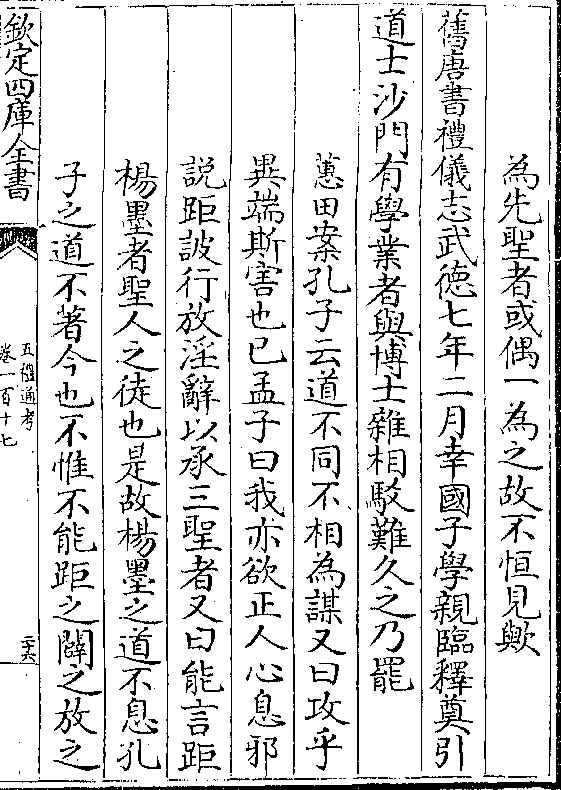 為先聖者或偶一為之故不恒見歟
舊唐書禮儀志武徳七年二月幸國子學親臨釋奠引
道士沙門有學業者與博士雜相駁難久之乃罷
蕙田案孔子云道不同不相為謀又曰攻乎
異端斯害也已孟子曰我亦欲正人心息邪
説距詖行放淫辭以承三聖者又曰能言距
楊墨者聖人之徒也是故楊墨之道不息孔
子之道不著今也不惟不能距之闢之放之
欽定四庫全書
五禮通考
卷一百十七
二十六